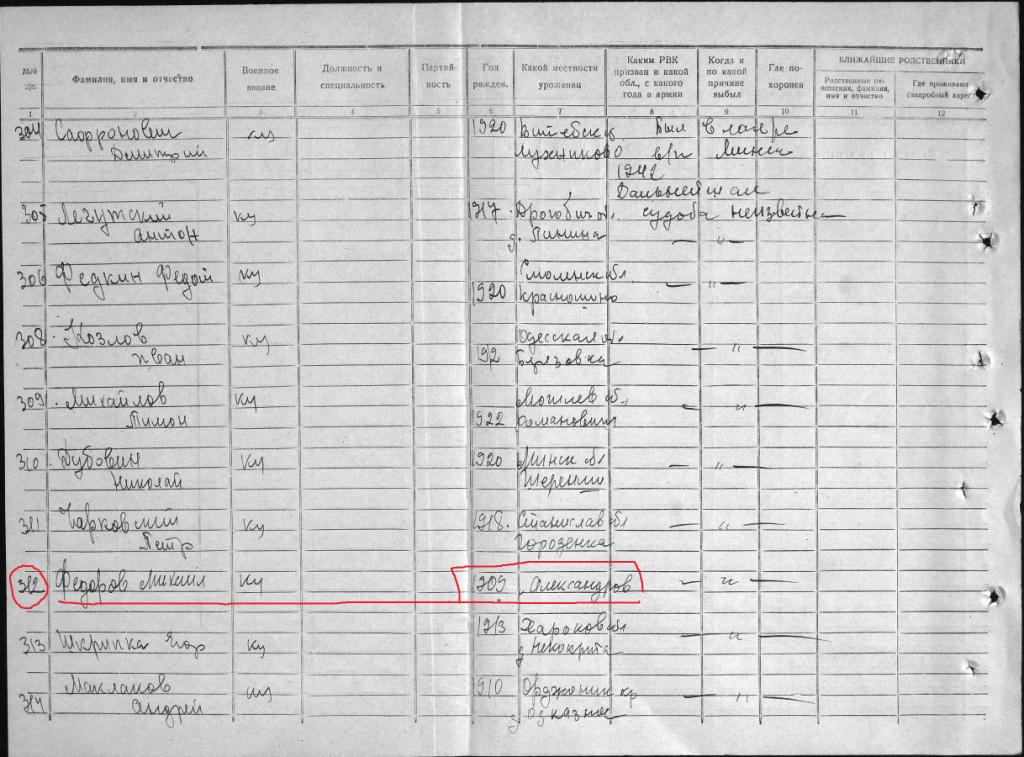 №№ п/п. Фамилия, имя и отчество Военное звание Должность и специальность Партий-ность Год рожден. Какой местности уроженец Каким РВК призван и какой обл., с какого года в армии Когда и по какой причине выбыл Где по-хоронен БЛИЖАЙШИЕ РОДСТВЕННИКИ
Родственные от-ношения, фамилия, имя и отчество Где проживают (подробный адрес)
1 2 3 4 5 6 7 8 9 10 11 12
304 1920 Витебск Был в лагере
Димитрий Лужниково в/п Минск
1942
Дальнейшая
305 Антон ку 1917 Дрогобич обл. судьба неизвестна
— " —
306 Федкин Федор ку Смоленск обл
1920 — " —
308 Козлов ку Одесская обл.
Иван 192 — " —
309 Михайлов ку Могилев обл
Тимон 1922 — " —
310 Дубовин ку 1920 Минск обл — " —
Николай
311 ку 1918. Станислав обл — " —
Петр
312 Федоров Михаил ку 1909 Александров — " —
1913 Харьков обл
313 Шкрипка Егор ку — " —
Маклаков 1910 Орджоник кр — " —
314 Андрей